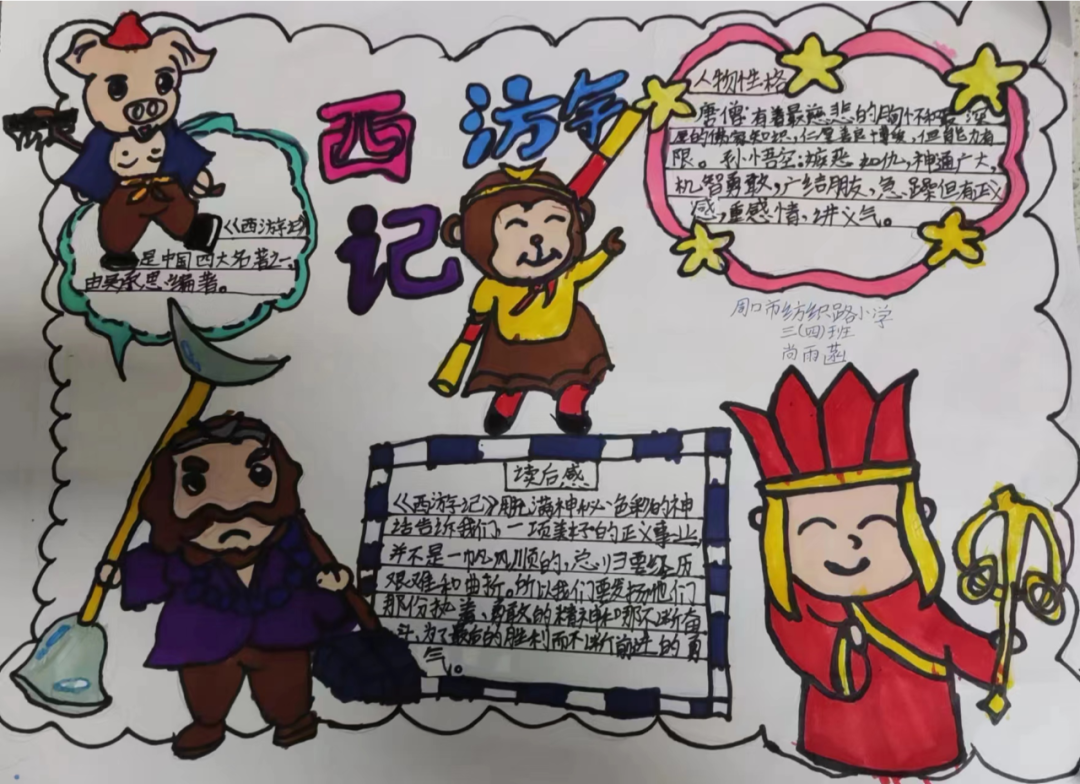 西游记
《西游记》
是中国四大名著之一,
由吴承恩编著。
人物性格
唐僧:有着最慈悲的胸怀和
的佛家知识,仁厚善良博爱,但能力有
限。孙悟空:嫉恶如仇,神通广大,
机智勇敢,广结朋友,急躁但有正义
感,重感情,讲义气。
周口市纺织路小学
三(四)班
尚雨菡
读后感
《西游记》用充满神秘色彩的神
话告诉我们,一项美好的正义事业,
并不是一帆风顺的,总归要经历
艰难和曲折。所以我们要发扬他们
那份执着、勇敢的精神和那不断奋
斗、为了最后的胜利而不断前进的勇
气。